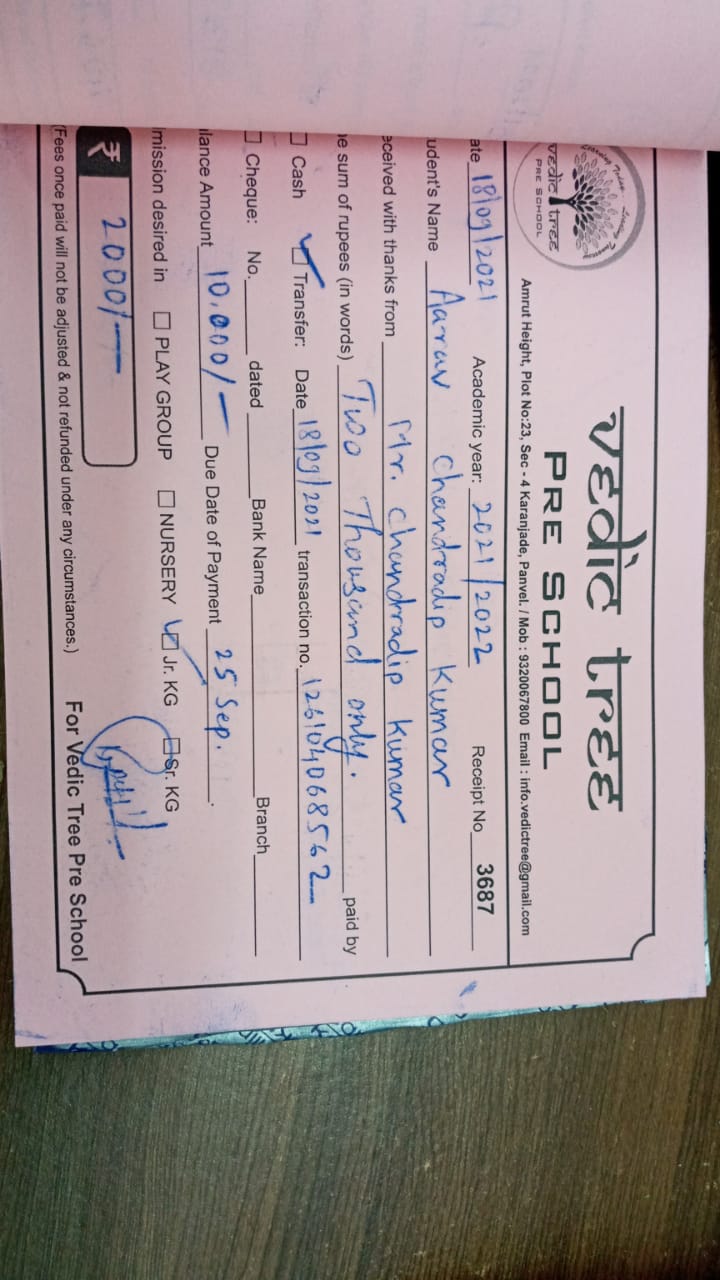 vedic tree
PRE SCHOOL
vedic tree
PRE SCHOOL
Amrut Height, Plot No:23, Sec - 4 Karanjade, Panvel. / Mob : 9320067800 Email : info.vedictree@gmail.com
ate 18/09/2021 Academic year: 2021/2022 Receipt No 3687
udent's Name Aarav Chandradip Kumar
eceived with thanks from Mr. Chandradip Kumar
e sum of rupees (in words) Two Thousand only. paid by
Cash Transfer: Date 18/09/2021 transaction no. 126104068562
Cheque: No. dated Bank Name Branch
lance Amount 10,000/- Due Date of Payment 25 Sep.
mission desired in PLAY GROUP NURSERY Jr. KG Sr. KG
₹ 2000/-
For Vedic Tree Pre School
(Fees once paid will not be adjusted & not refunded under any circumstances.)